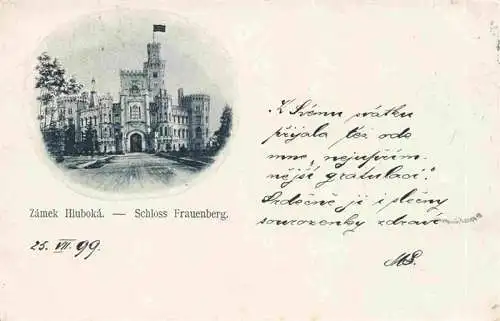 Zámek Hluboká. — Schloss Frauenberg.
25. VII. 99.
"K Svému svátku
přijala též ode
mne "nejupřím-
nější gratulaci."
Srdečně ji i slečny
sourozenky zdraví
MS.